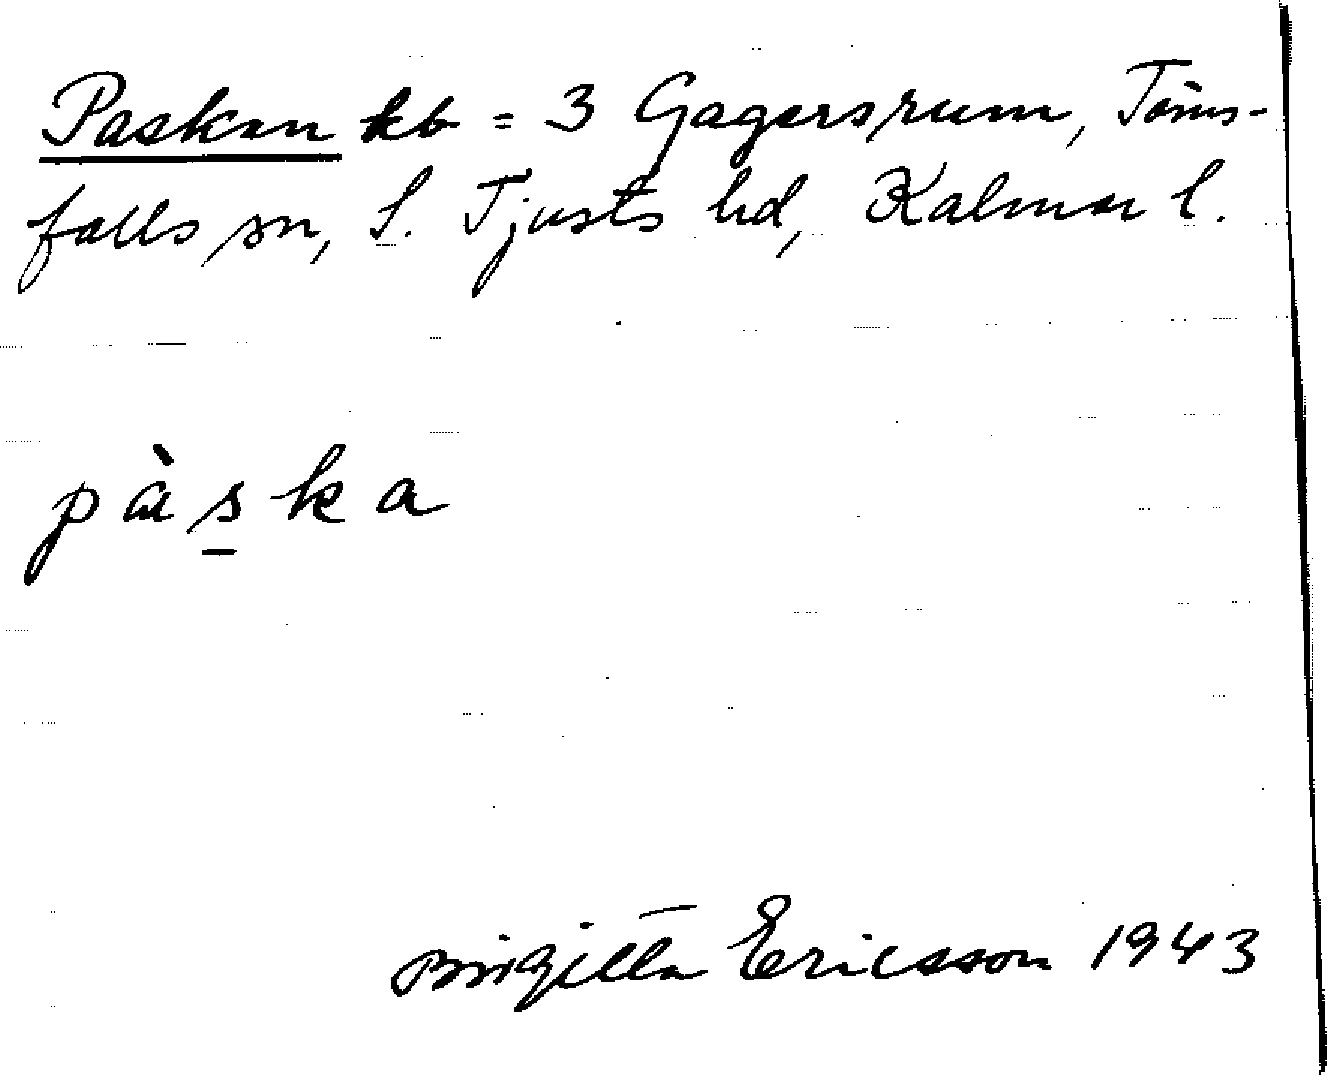 Paskan kb = 3 Gagersrum, Törns-
falls sn, S. Tjusts hd, Kalmar l.
pàs̠ka
Birgitta Ericsson 1943